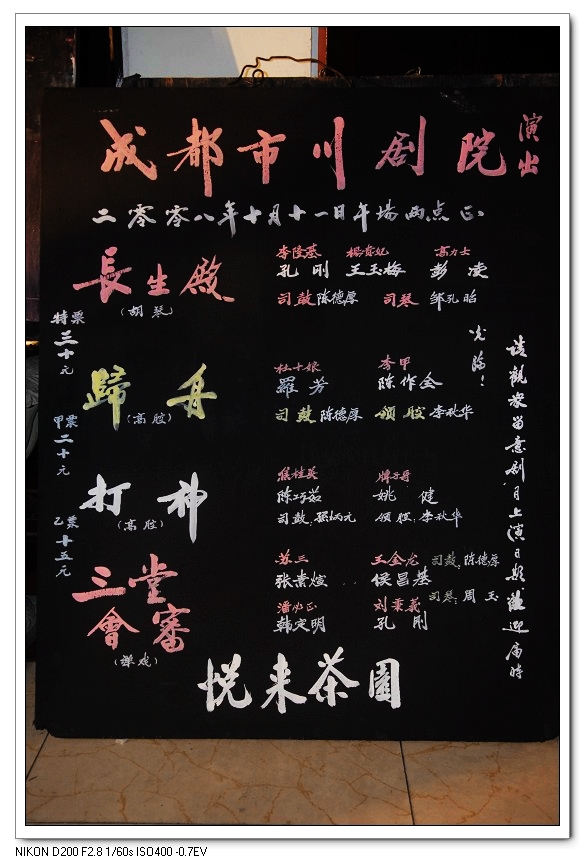 成都市川劇院 演出
二零零八年十月十一日午場两点正
長生殿
(胡琴)
李隆基 楊貴妃 高力士
孔刚 王玉梅 彭凌
司鼓 陈德厚 司琴 邹孔昭
特票
三十元
歸舟
(高腔)
杜十娘 李甲
羅芳 陈作全
司鼓 陈德厚 领腔 李秋华
甲票
二十元
打神
(高腔)
焦桂英 牌子哥
陈巧茹 姚健
司鼓: 孫炳元 领腔: 李秋华
乙票
十五元
三堂
會審
(弹戏)
苏三 王金龙 司鼓: 陈德厚
张素煊 侯昌基 司琴: 周玉
潘必正 刘秉義
韩定明 孔刚
请觀众留意剧目上演日期 欢迎届時
光临!
悦来茶園
NIKON D200 F2.8 1/60s ISO400 -0.7EV